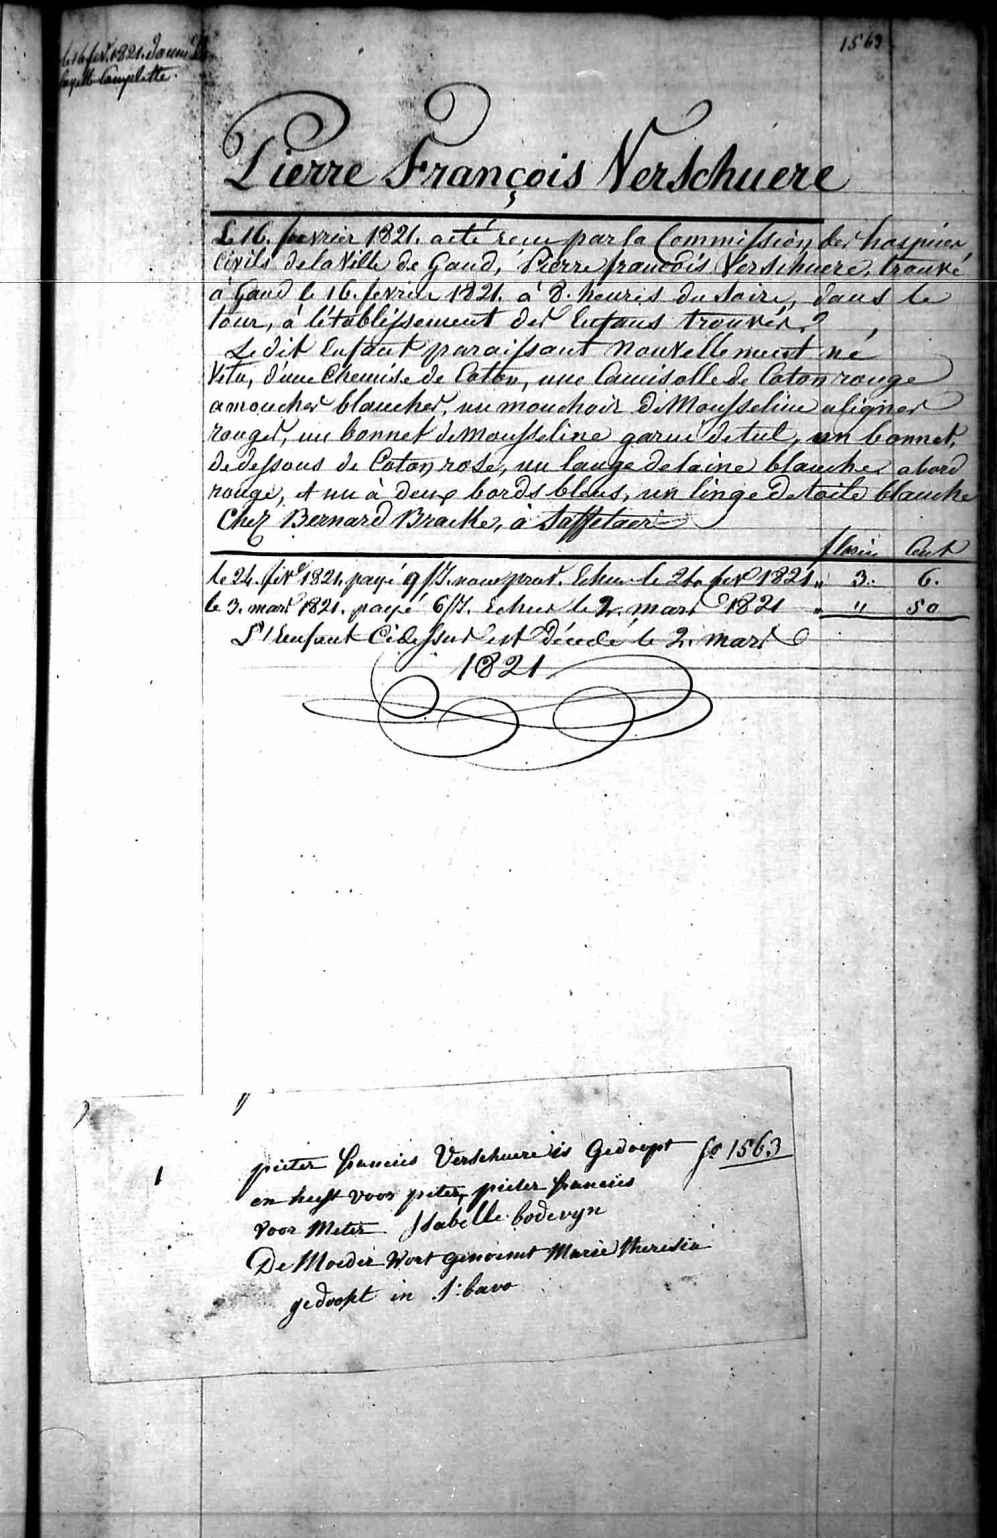 1563
le 16 fevr. 1821. donné
layette Complette.
Pierre François Verschuere
Le 16. fevrier 1821. a été reçu par la Commission des hospices
Civils de la Ville de Gand, Pierre francois Verschuere, trouvé
à Gand le 16. fevrier 1821. à 8. heures du soire, dans le
tour, à l'établissement des Enfans trouvés.
Le dit Enfant paraissant nouvellement né
Vetu, d'une Chemise de Coton, une Camisolle de Coton rouge
a moucher blancher, un mouchoir de Mousseline a ligner
rouges, un bonnet de mousseline garnie de tul, un bonnet,
de dessous de Coton rose, un lange de laine blanche a bord
rouge, et un à deux bords bleus, un linge de toile blanche
Chez Bernard Bracke, à Saffelaer
florin Cent
le 24. fevr 1821. payé 9/J. nour prov. Echus le 24 fevr 1821 „ 3. 6.
le 3. mars 1821. payé 6/J. Echus le 2. mars 1821 „ " 50
L'Enfant Cidessus est Décédé le 2. mars
1821
1
pieter francies Verschuere is Gedoopt fo 1563
en heeft voor peter, pieter francies
voor Meter Isabelle bodevyn
De Moeder Wort genoemt Marie Theresia
gedoopt in St: bavo